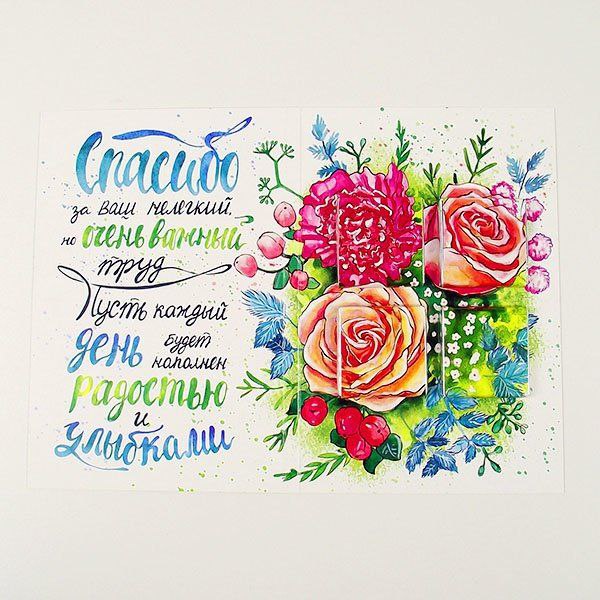 Спасибо
за ваш нелегкий,
но очень важный
труд
Пусть каждый
день будет
наполнен
радостью
и
улыбками